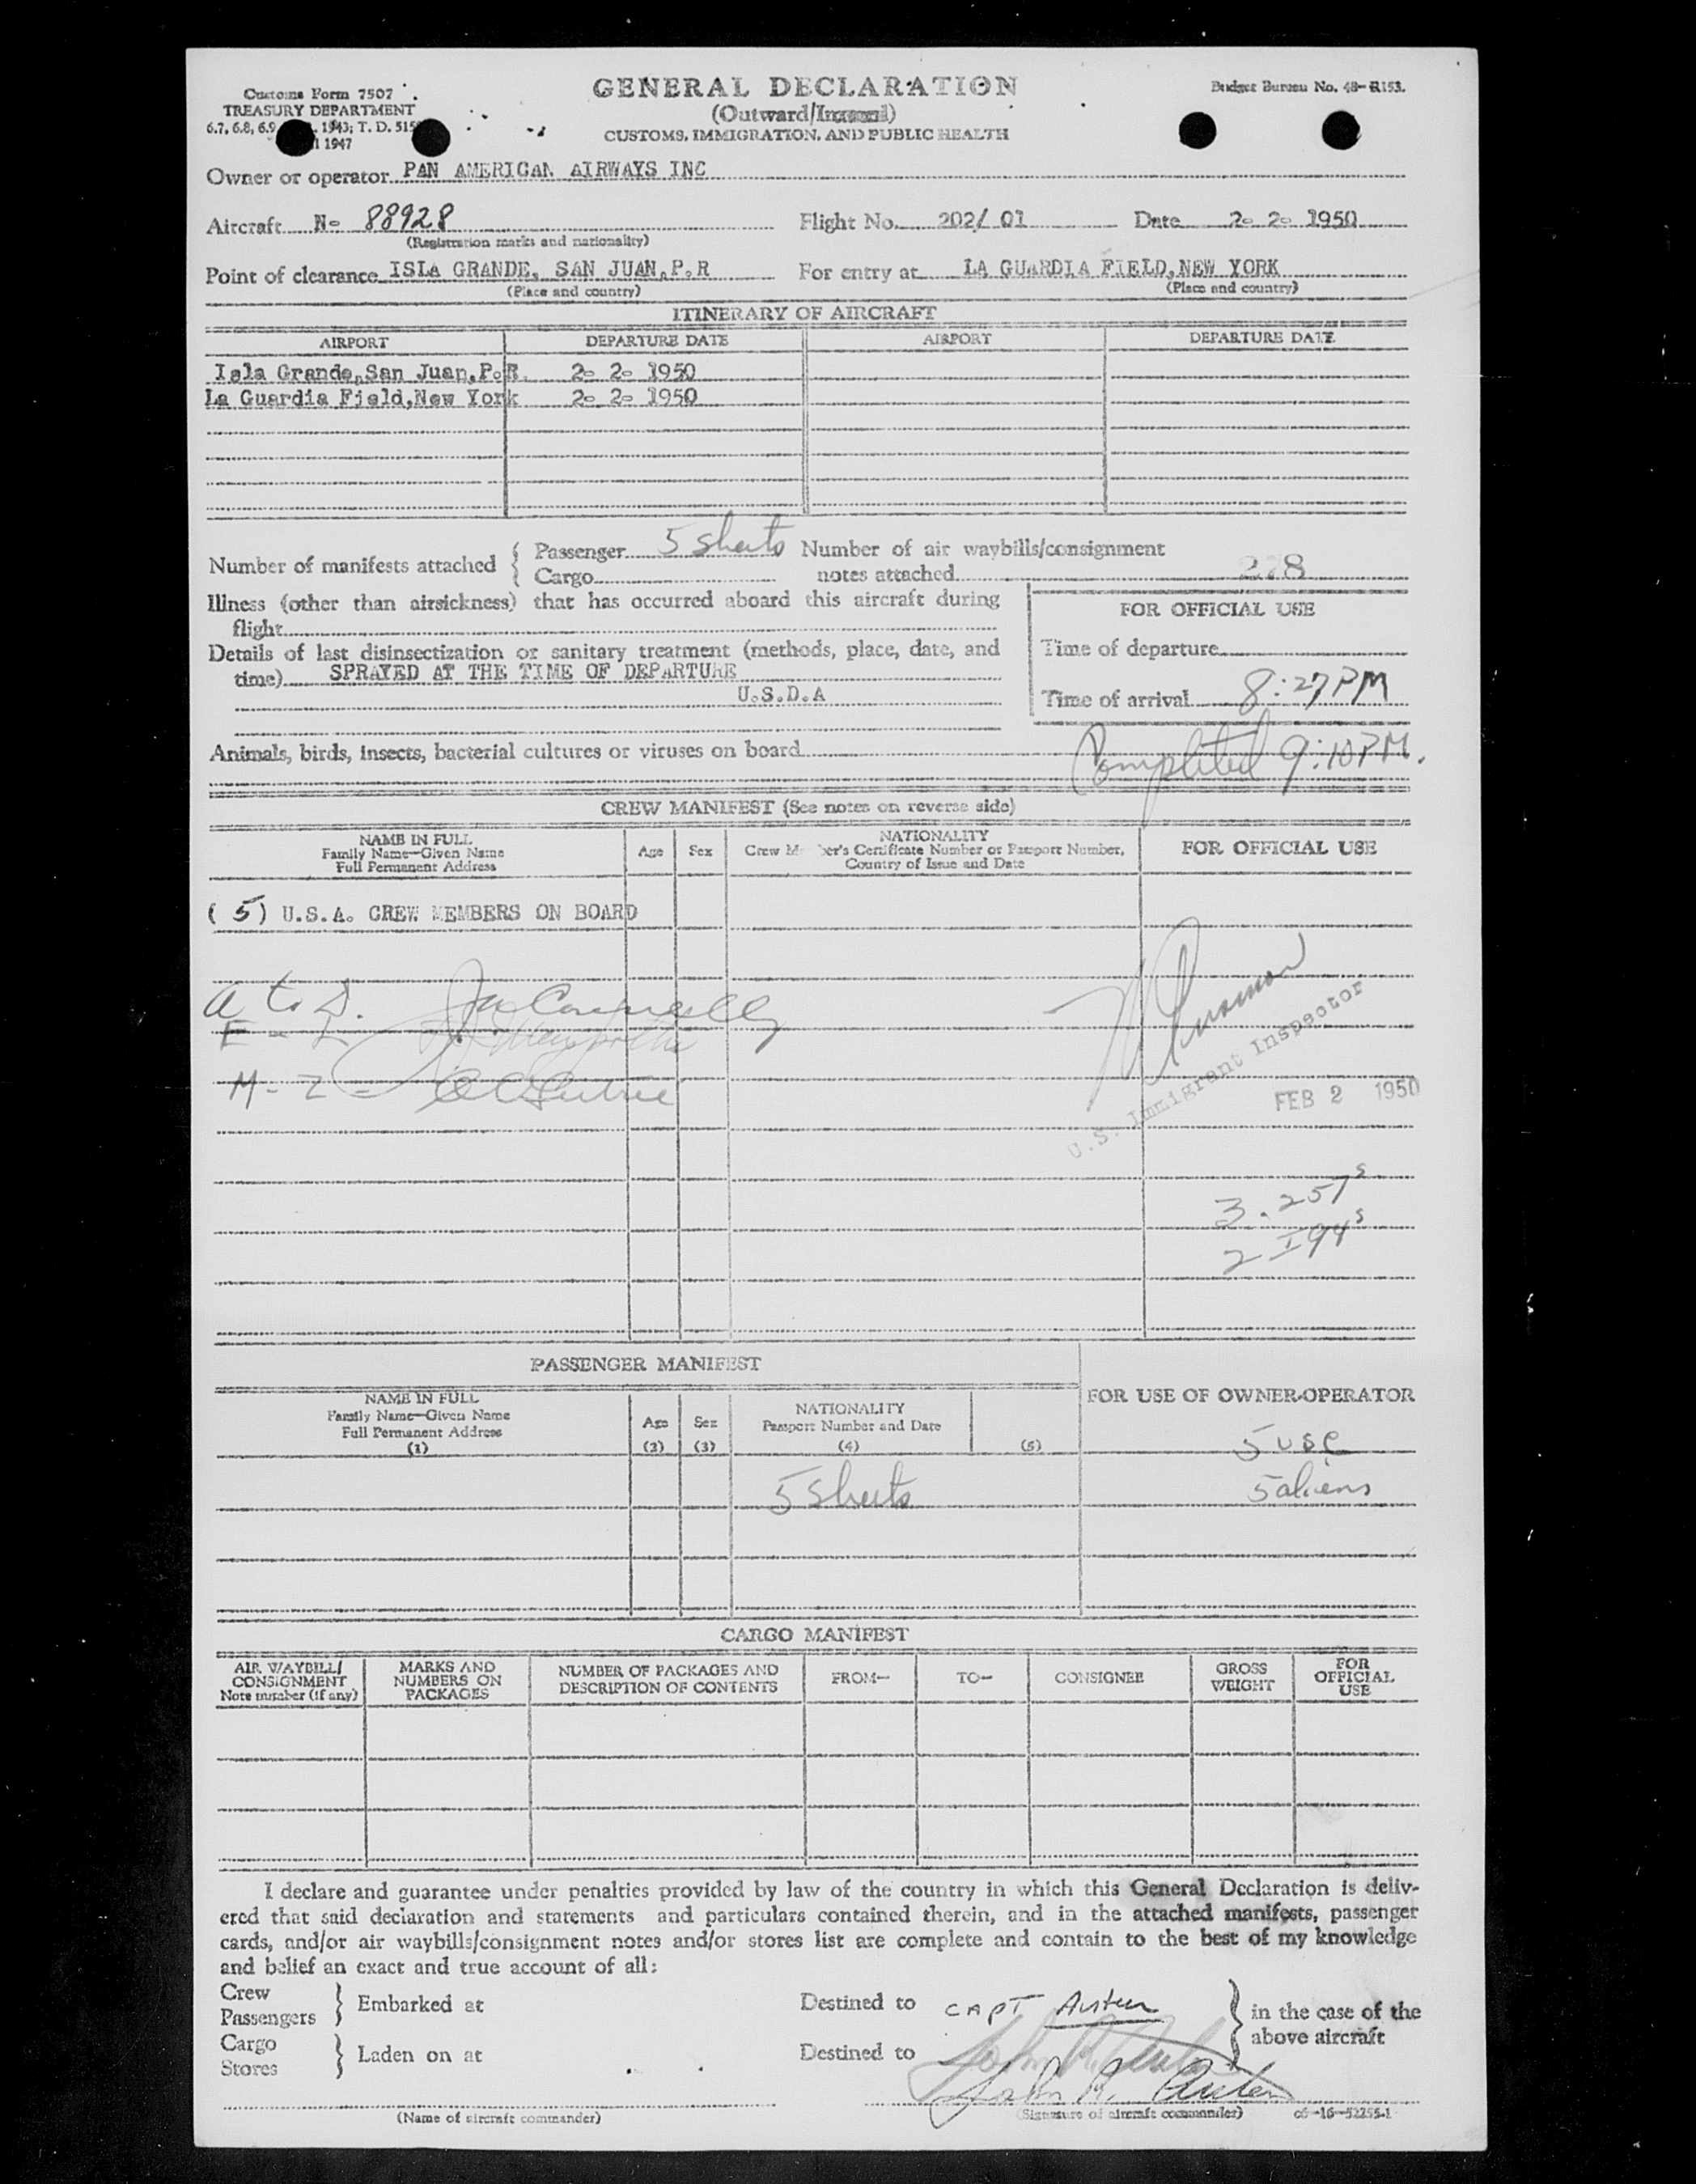 Customs Form 7507
TREASURY DEPARTMENT
6.7, 6.8, 6.9, 1943; T. D. 515
1947
GENERAL DECLARATION
(Outward/Inward)
CUSTOMS, IMMIGRATION, AND PUBLIC HEALTH
Budget Bureau No. 48-R153.
Owner or operator PAN AMERICAN AIRWAYS INC
Aircraft N- 88928 Flight No. 202/ 01 Date 2- 2- 1950
(Registration marks and nationality)
Point of clearance ISLA GRANDE, SAN JUAN, P.R For entry at LA GUARDIA FIELD, NEW YORK
(Place and country) (Place and country)
ITINERARY OF AIRCRAFT
AIRPORT DEPARTURE DATE AIRPORT DEPARTURE DATE
Isla Grande, San Juan, P.R. 2- 2- 1950
La Guardia Field, New York 2- 2- 1950
Number of manifests attached { Passenger 5 sheets Number of air waybills/consignment
Cargo notes attached 278
Illness (other than airsickness) that has occurred aboard this aircraft during
flight
FOR OFFICIAL USE
Details of last disinsectization or sanitary treatment (methods, place, date, and
time) SPRAYED AT THE TIME OF DEPARTURE
U.S.D.A
Time of departure
Time of arrival 8:27 PM
Animals, birds, insects, bacterial cultures or viruses on board
Completed 9:10 P.M.
CREW MANIFEST (See notes on reverse side)
NAME IN FULL
Family Name—Given Name
Full Permanent Address
Age Sex
NATIONALITY
Crew Member's Certificate Number or Passport Number,
Country of Issue and Date
FOR OFFICIAL USE
( 5 ) U.S.A. CREW MEMBERS ON BOARD
A to D.
E - L
M - Z
U.S. Immigrant Inspector
FEB 2 1950
3. 257s
2 I94s
PASSENGER MANIFEST
NAME IN FULL
Family Name—Given Name
Full Permanent Address
(1)
Age
(2)
Sex
(3)
NATIONALITY
Passport Number and Date
(4)
(5)
FOR USE OF OWNER-OPERATOR
5 USC
5 sheets
5 aliens
CARGO MANIFEST
AIR WAYBILL/
CONSIGNMENT
Note number (if any)
MARKS AND
NUMBERS ON
PACKAGES
NUMBER OF PACKAGES AND
DESCRIPTION OF CONTENTS
FROM—
TO—
CONSIGNEE
GROSS
WEIGHT
FOR
OFFICIAL
USE
I declare and guarantee under penalties provided by law of the country in which this General Declaration is deliv-
ered that said declaration and statements and particulars contained therein, and in the attached manifests, passenger
cards, and/or air waybills/consignment notes and/or stores list are complete and contain to the best of my knowledge
and belief an exact and true account of all:
Crew
Passengers } Embarked at Destined to CAPT Auten
Cargo
Stores } Laden on at Destined to
} in the case of the
above aircraft
John R. Auten
(Name of aircraft commander) (Signature of aircraft commander) c6—16—52255-1